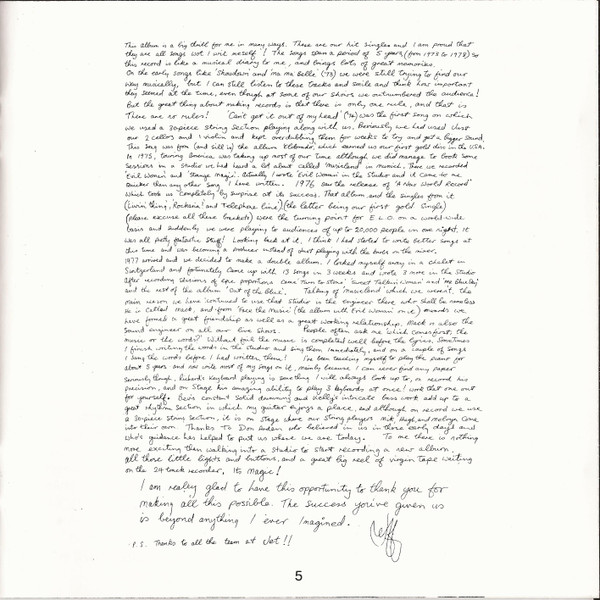 This album is a big thrill for me in many ways. These are our hit singles and I am proud that
they are all songs wot I writ meself! The songs span a period of 5 years, (from 1973 to 1978) so
this record is like a musical diary to me, and brings lots of great memories.
On the early songs like 'Showdown' and 'ma ma Belle' ('73) we were still trying to find our
way musically, but I can still listen to these tracks and smile and think how important
they seemed at the time, even though at some of our shows we outnumbered the audience!
But the great thing about making records is that there is only one rule, and that is
There are no rules! 'Can't get it out of my head' ('74) was the first song on which
we used a 30 piece string section playing along with us, Previously we had used just
our 2 cellos and 1 violin and kept overdubbing them for weeks to try and get a bigger sound.
This song was from (and still is) the album 'Eldorado', which earned us our first gold disc in the U.S.A.
In 1975, touring America was taking up most of our time although we did manage to book some
sessions in a studio we had heard a lot about called 'musicland' in munich. There we recorded
'Evil Woman' and 'strange magic'. Actually I wrote 'Evil Woman' in the studio and it came to me
quicker than any other song I have written. 1976 saw the release of 'A New World Record'
which took us completely by surprise at its success. That album and the singles from it
(Livin' thing, Rockaria! and Telephone line) (the latter being our first gold single)
(please excuse all these brackets) were the turning point for E.L.O. on a world-wide
basis and suddenly we were playing to audiences of up to 20,000 people in one night. It
was all pretty fantastic stuff! Looking back at it, I think I had started to write better songs at
this time and was becoming a producer instead of just playing with the knobs on the mixer.
1977 arrived and we decided to make a double album. I locked myself away in a chalet in
Switzerland and fortunately came up with 13 songs in 3 weeks and wrote 3 more in the studio
After recording sessions of epic proportions came Turn to stone, 'Sweet Talkin' Woman' and 'Mr Blue Sky'
and the rest of the album 'Out of the blue'. Talking of 'musicland' which we weren't, the
main reason we have continued to use that studio is the engineer there who shall be nameless
He is called Mack, and from 'Face the Music' (the album with Evil Woman on it) onwards we
have formed a great friendship as well as a great working relationship. Mack is also the
sound engineer on all our live shows. People often ask me which comes first, the
music or the words? Without fail the music is completed well before the lyrics. Sometimes
I finish writing the words in the studio and sing them immediately, and on a couple of songs
I sang the words before I had written them! I've been teaching myself to play the piano for
about 5 years and now write most of my songs on it, mainly because I can never find any paper
seriously though, Richard's keyboard playing is something I will always look up to, on record his
precision, and on stage his amazing ability to play 3 keyboards at once! work that one out
for yourself. Bev's constant solid drumming and Kelly's intricate bass work add up to a
great rhythm section in which my guitar enjoys a place, and although on record we use
a 30-piece string section, it is on stage where our string players Mik, Hugh, and Melvyn come
into their own Thanks To Don Arden who believed in us in those early days and
who's guidance has helped to put us where we are today. To me there is nothing
more exciting then walking into a studio to start recording a new album.
all those little lights and buttons, and a great big reel of virgin tape waiting
on the 24 track recorder, Its Magic!
I am really glad to have this opportunity to thank you for
making all this possible. The success you've given us
is beyond anything I ever imagined.
Jeff
P.S. Thanks to all the team at Jet!!
5